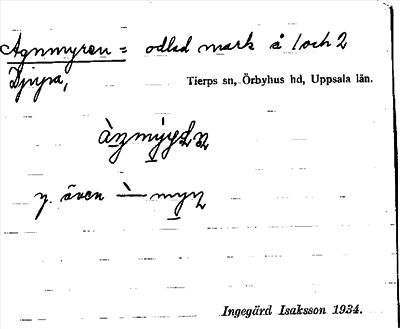 Agnmyren = odlad mark å 1 och 2
Djupa,
Tierps sn, Örbyhus hd, Uppsala län.
y. även
Ingegärd Isaksson 1934.